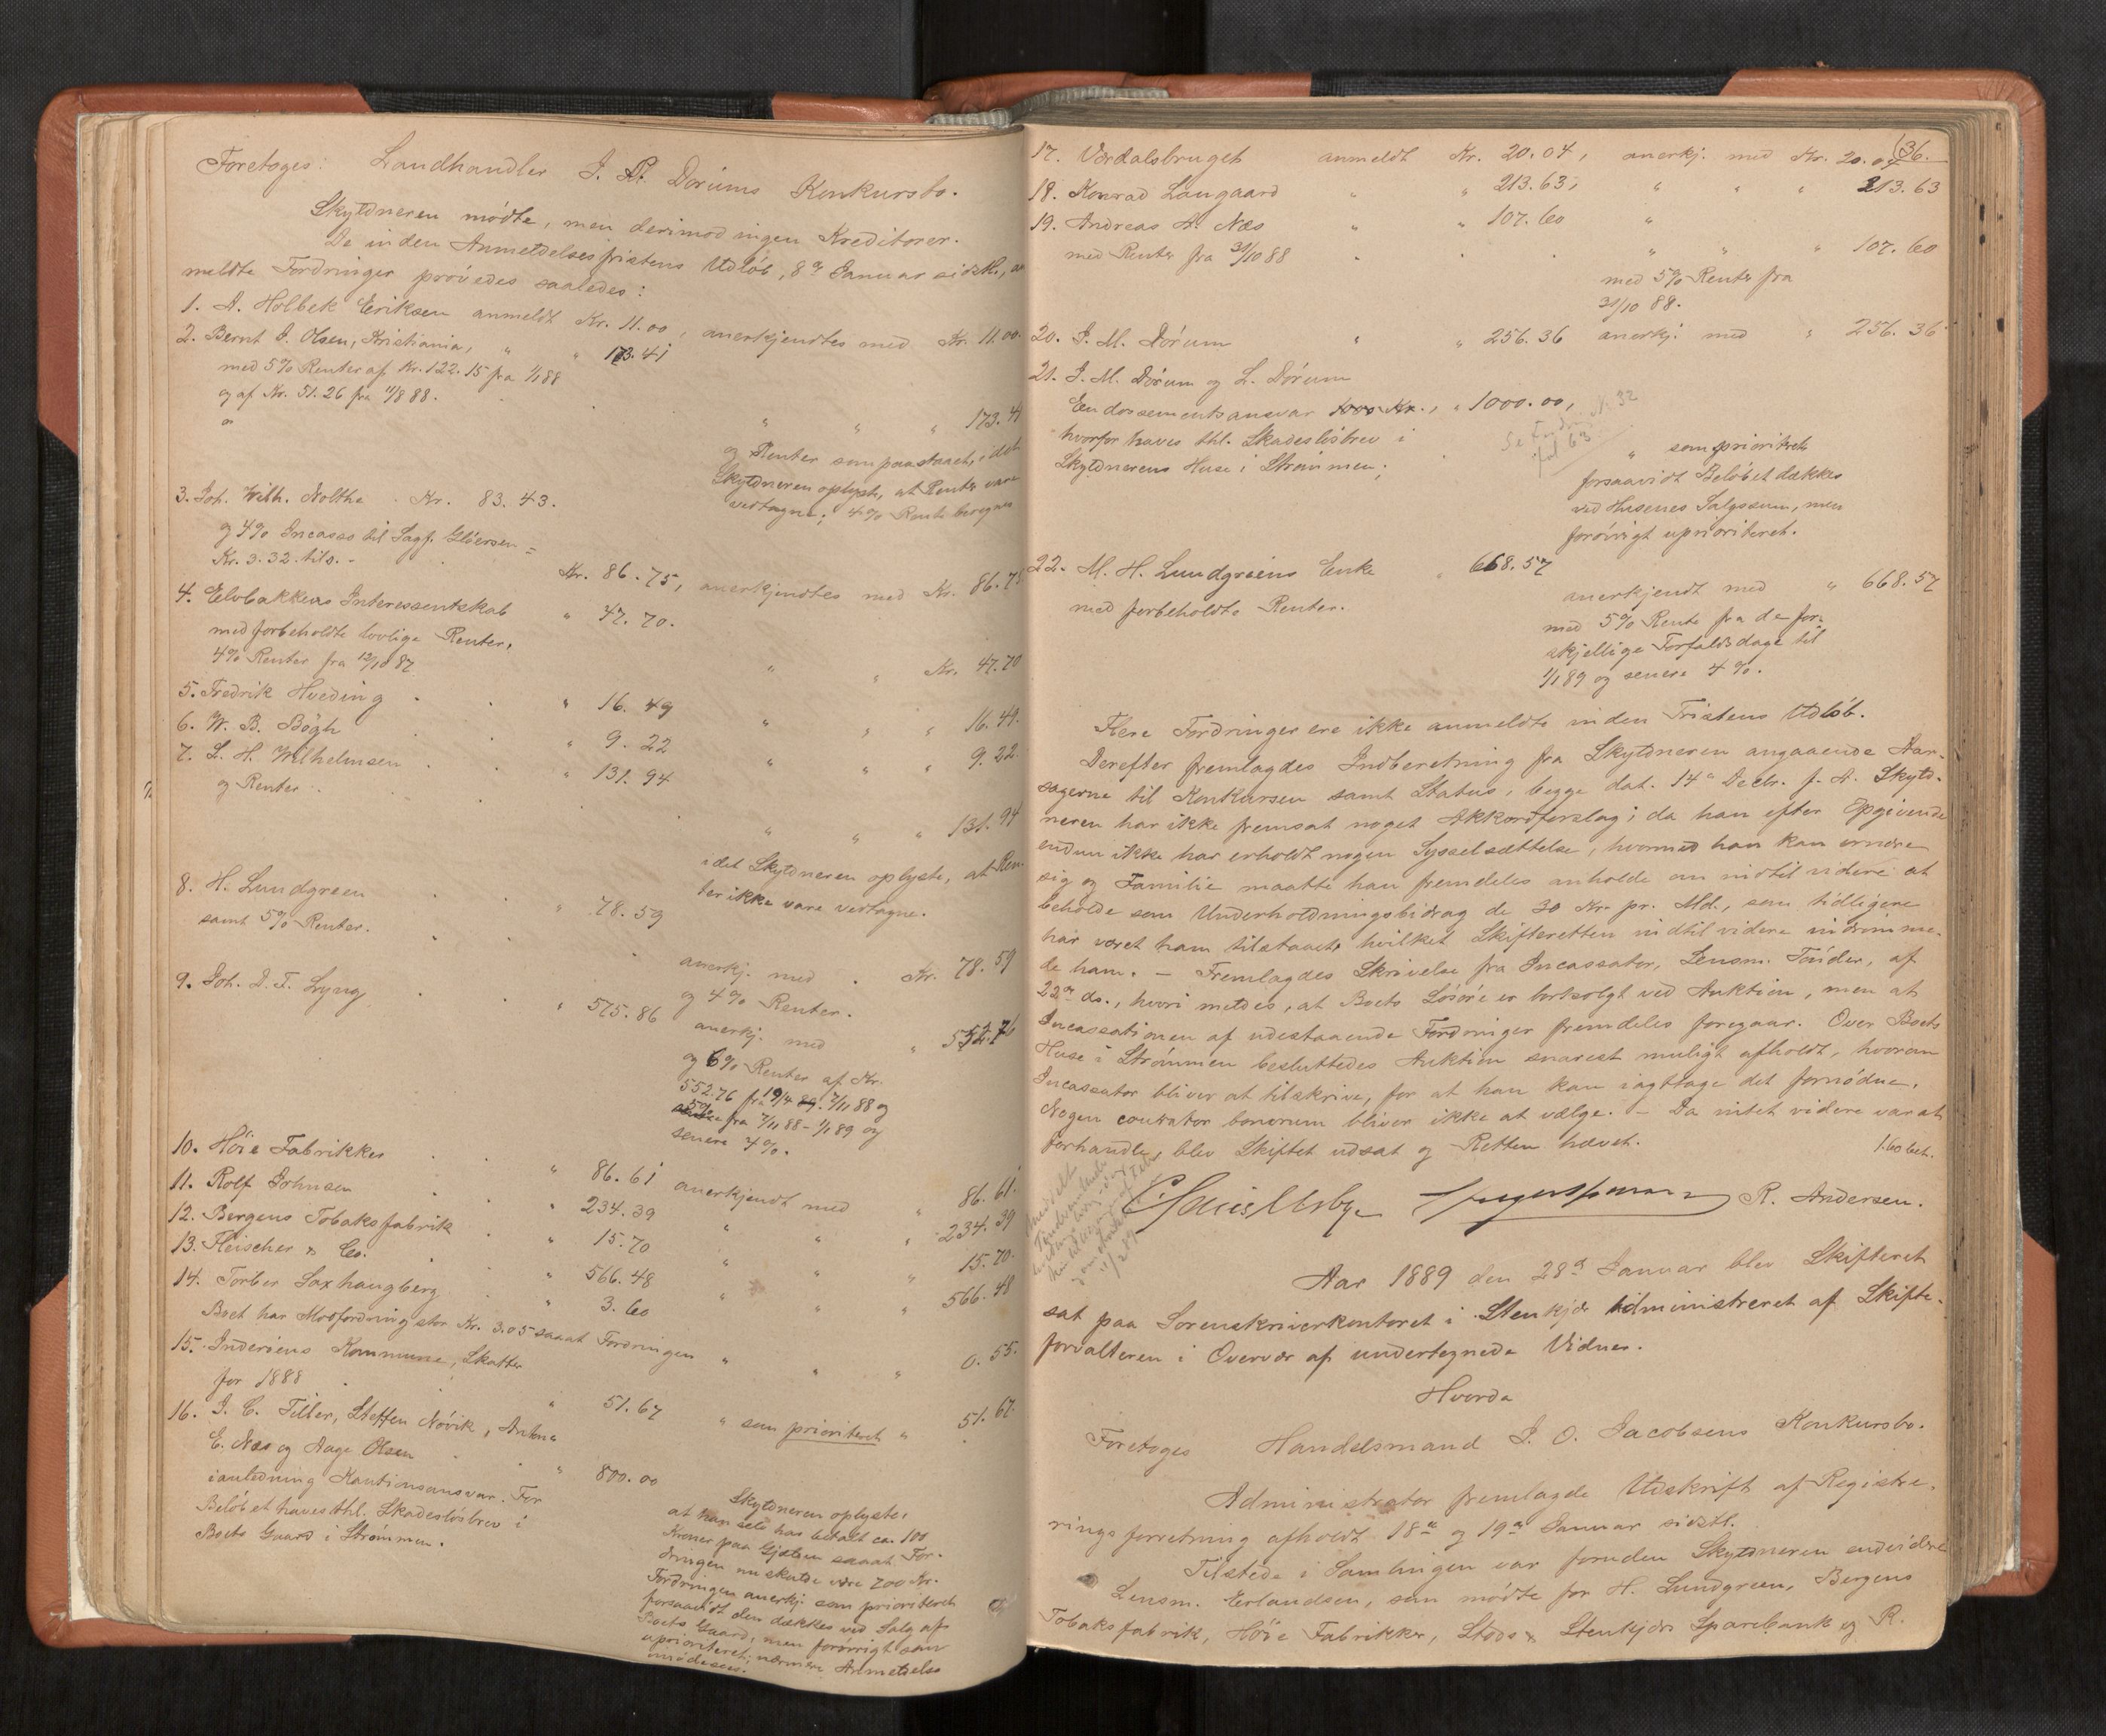 Foretoges: Landhandler J. P. Dørums Konkursbo.
Skyldneren mødte, men derimod ingen Kreditorer.
De inden Anmeldelsesfristens Udløb, 8de Januar sidstl., an
meldte Fordringer prøvedes saaledes:
1. A. Holbek Eriksen anmeldt Kr. 11.00, anerkjendtes med Kr. 11.00
2. Bernt J. Olsen, Kristiania, " " 173.41
med 5% Renter af Kr. 122.15 fra 1/1 88
og af Kr. 51.26 fra 11/8 88.
" " " 173.41
og Renter som paastaaet, idet
Skyldneren oplyste, at Renter vare
vedtagne; 4% Rente beregnes
3. Joh. Wilh. Nolthe Kr. 83.43.
og 4% Incasso til Sagf. Gløersen =
Kr. 3.32. tils. - Kr. 86.75, anerkjendtes med Kr. 86.75
4. Elvebakkens Interessentskab " 47.70.
med forbeholdte lovlige Renter,
4% Renter fra 12/10 87 " " Kr. 47.70
5. Fredrik Hveding " 16.49 " " " 16.49.
6. W. B. Bøgh " 9.22 " " " 9.22
7. L. H. Wilhelmsen " 131.94
og Renter " " " 131.94
idet Skyldneren oplyste, at Ren-
ter ikke vare vedtagne.
8. H. Lundgreen " 78.59
samt 5% Renter.
anerkj. med Kr. 78.59
og 4% Renter.
9. Joh. D. F. Lyng " 575.86
anerkj. med " 552.76
og 6% Renter af Kr.
552.76 fra 19/4 - 7/11 88 og
5% fra 7/11 88 - 1/1 89 og
senere 4%.
10. Høie Fabrikker " 86.61 anerkjendt med " 86.61.
11. Rolf Johnsen " 234.39 " " " 234.39
12. Bergens Tobaksfabrik " 15.70 " " " 15.70.
13. Fleischer & Co. " 566.48 " " " 566.48
14. Torber Saxhaugberg " 3.60
Boet har Modfordring stor Kr. 3.05 saaat Fordringen " " " 0.55.
15. Inderøens Kommune, Skatter
for 1888 " 51.67 " som prioriteret " 51.67.
16. J. C. Tiller, Steffen Nøvik, Anton
E. Næs og Aage Olsen " 800.00
ianledning Kautionsansvar. For
Beløbet haves thl. Skadesløsbrev i
Boets Gaard i Strømmen.
Skyldneren oplyste,
at han selv har betalt ca. 100
Kroner paa Gjælden saaat For-
dringen nu skulde være 700 Kr.
Fordringen anerkj. som prioriteret
forsaavidt den dækkes ved Salg af
Boets Gaard, men forøvrigt som
uprioriteret; nærmere Anmeldelse
imødesees.
36.
17. Værdalsbruget anmeldt Kr. 20.04, anerkj. med Kr. 20.04
18. Konrad Langaard " " 213.63, " " " 213.63
19. Andreas A. Næs " " 107.60 "
med Renter fra 31/10 88 " " " 107.60
med 5% Renter fra
31/10 88.
20. J. M. Dørum " " 256.36 anerkj. med " 256.36
21. J. M. Dørum og L. Dørum
Endossementsansvar 1000 Kr., " 1000.00,
hvorfor haves thl. Skadesløsbrev i
Skyldnerens Huse i Strømmen;
" som prioriteret
forsaavidt Beløbet dækkes
ved Husenes Salgssum, men
forøvrigt uprioriteret.
22. M. H. Lundgreens Enke " 668.57
med forbeholdte Renter.
anerkjendt med " 668.57
med 5% Rente fra de for-
skjellige Forfaldsdage til
1/1 89 og senere 4%.
Flere Fordringer ere ikke anmeldte inden Fristens Udløb.
Derefter fremlagdes Indberetning fra Skyldneren angaaende Aar-
sagerne til Konkursen samt Status, begge dat. 14de Decbr. f. A. Skyld-
neren har ikke fremsat noget Akkordforslag; da han efter Opgivende
endnu ikke har erholdt nogen Sysselsættelse, hvormed han kan ernære
sig og Familie maatte han fremdeles anholde om indtil videre at
beholde som Underholdningsbidrag de 30 Kr. pr. Md., som tidligere
har været ham tilstaaet, hvilket Skifteretten indtil videre indrømme-
de ham. - Fremlagdes Skrivelse fra Incassator, Lensm. Tønder, af
22de ds., hvori meldes, at Boets Løsøre er bortsolgt ved Auktion, men at
Incassationen af udestaaende Fordringer fremdeles foregaar. Over Boets
Huse i Strømmen besluttedes Auktion snarest muligt afholdt, hvorom
Incassator bliver at tilskrive, for at han kan iagttage det fornødne.
Nogen courator bonorum bliver ikke at vælge. - Da intet videre var at
forhandle, blev Skiftet udsat og Retten hævet. 1.60 bet.
R. Andersen.
Aar 1889 den 28de Januar blev Skifteret
sat paa Sorenskriverkontoret i Stenkjær administreret af Skifte-
forvalteren i Overvær af undertegnede Vidner.
Hvorda
Foretoges Handelsmand J. O. Jacobsens Konkursbo.
Administrator fremlagde Udskrift af Registre-
ringsforretning afholdt 18de og 19de Januar sidstl.
Tilstede i Samlingen var foruden Skyldneren endvidere
Lensm. Erlandsen, som mødte for H. Lundgreen, Bergens
Tobaksfabrik, Høie Fabrikker, Stods & Stenkjærs Sparebank og R.